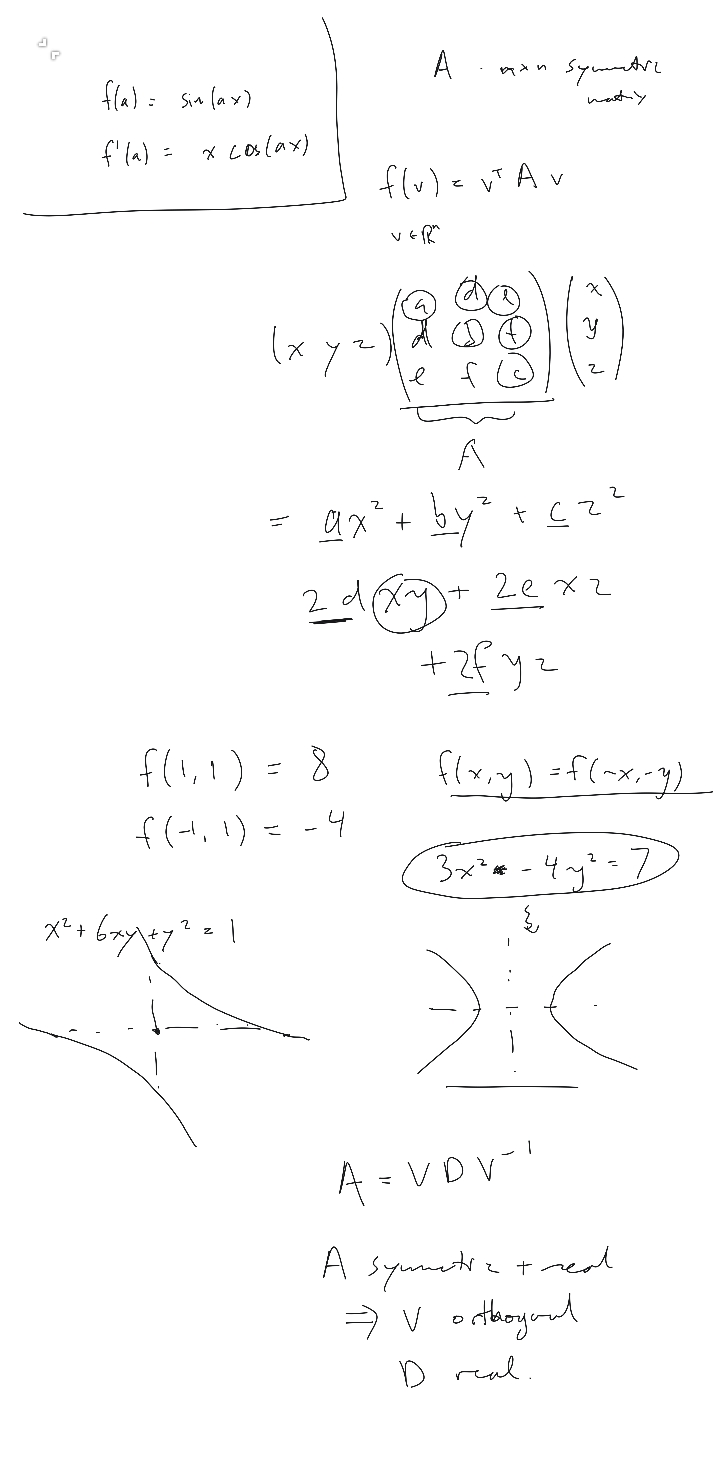 f(a) = sin(ax)
f'(a) = x cos(ax)
A - n×n symmetric
matrix
f(v) = vᵀ A v
v ∈ ℝⁿ
(x y z) (a d e
d b f
e f c) (x
y
z)
A
= ax² + by² + cz²
2dxy + 2exz
+ 2fyz
f(1,1) = 8
f(-1,1) = -4
f(x,y) = f(-x,-y)
3x² - 4y² = 7
x² + 6xy + y² = 1
A = V D V⁻¹
A symmetric + real
⇒ V orthogonal
D real.